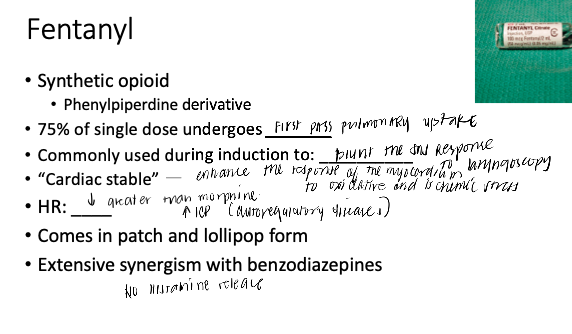 Fentanyl
FENTANYL Citrate
• Synthetic opioid
• Phenylpiperdine derivative
• 75% of single dose undergoes first pass pulmonary uptake
• Commonly used during induction to: blunt the SNS response to laryngoscopy
• “Cardiac stable” — enhance the response of the myocardium
to oxidative and ischemic stress
• HR: ↓ greater than morphine
↑ ICP (autoregulatory disease)
• Comes in patch and lollipop form
• Extensive synergism with benzodiazepines
No histamine release